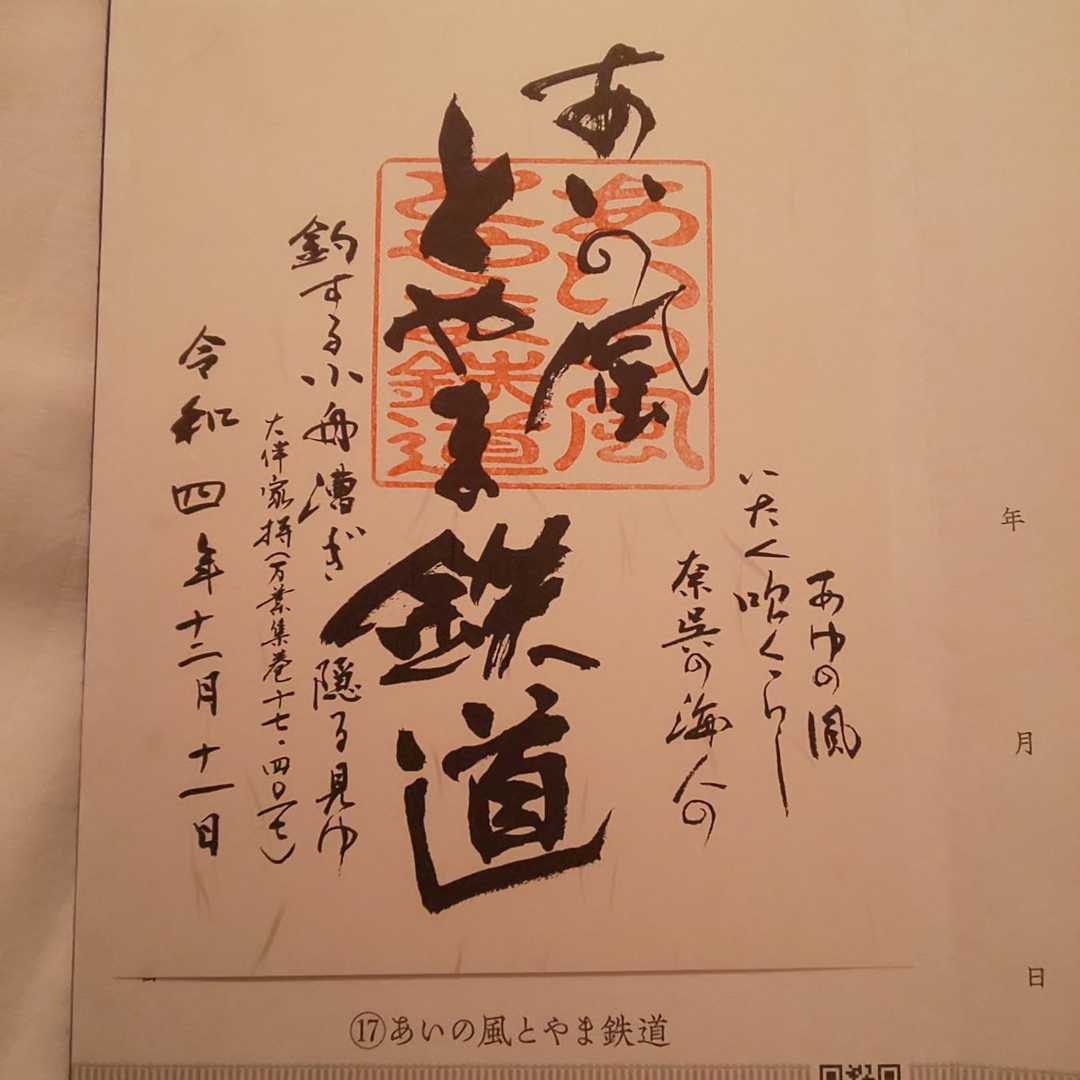 あゆの風
いたく吹くらし
奈呉の海人の
あいの風
とやま鉄道
あいの風
とやま鉄道
釣する小舟漕ぎ隠る見ゆ
大伴家持(万葉集巻十七・四〇一七)
令和四年十二月十一日
年
月
日
⑰あいの風とやま鉄道